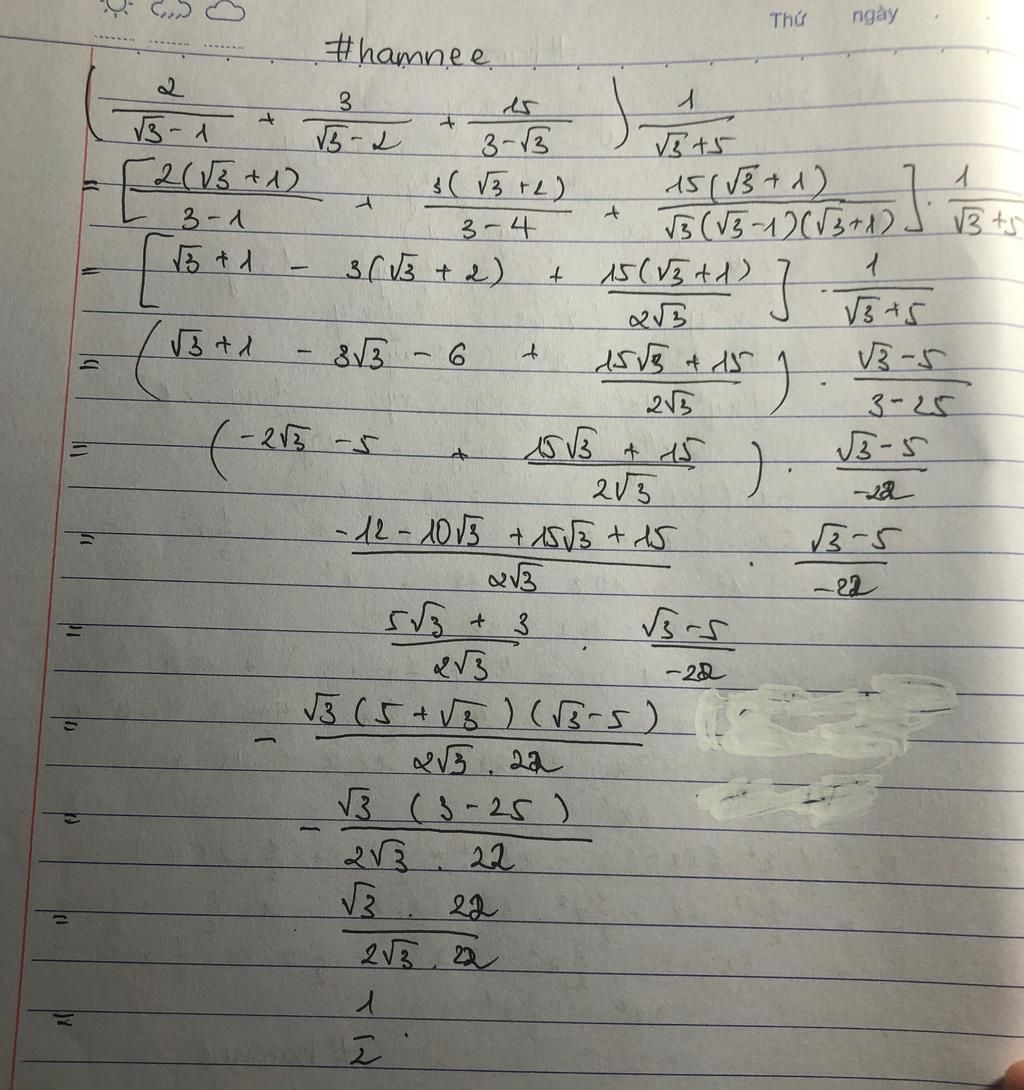 Thứ ngày
#hamnee
( 2/(√3 - 1) + 3/(√3 - 2) + 15/(3 - √3) ) 1/(√3 + 5)
= [ 2(√3 + 1)/(3 - 1) + 3(√3 + 2)/(3 - 4) + 15(√3 + 1)/(√3(√3 - 1)(√3 + 1)) ] . 1/(√3 + 5)
= [ √3 + 1 - 3(√3 + 2) + 15(√3 + 1)/(2√3) ] . 1/(√3 + 5)
= ( √3 + 1 - 3√3 - 6 + (15√3 + 15)/(2√3) ) . (√3 - 5)/(3 - 25)
= ( -2√3 - 5 + (15√3 + 15)/(2√3) ) . (√3 - 5)/(-22)
= (-12 - 10√3 + 15√3 + 15)/(2√3) . (√3 - 5)/(-22)
= (5√3 + 3)/(2√3) . (√3 - 5)/(-22)
= - √3(5 + √3)(√3 - 5)/(2√3 . 22)
= - √3 (3 - 25)/(2√3 . 22)
= √3 . 22/(2√3 . 22)
= 1/2 .